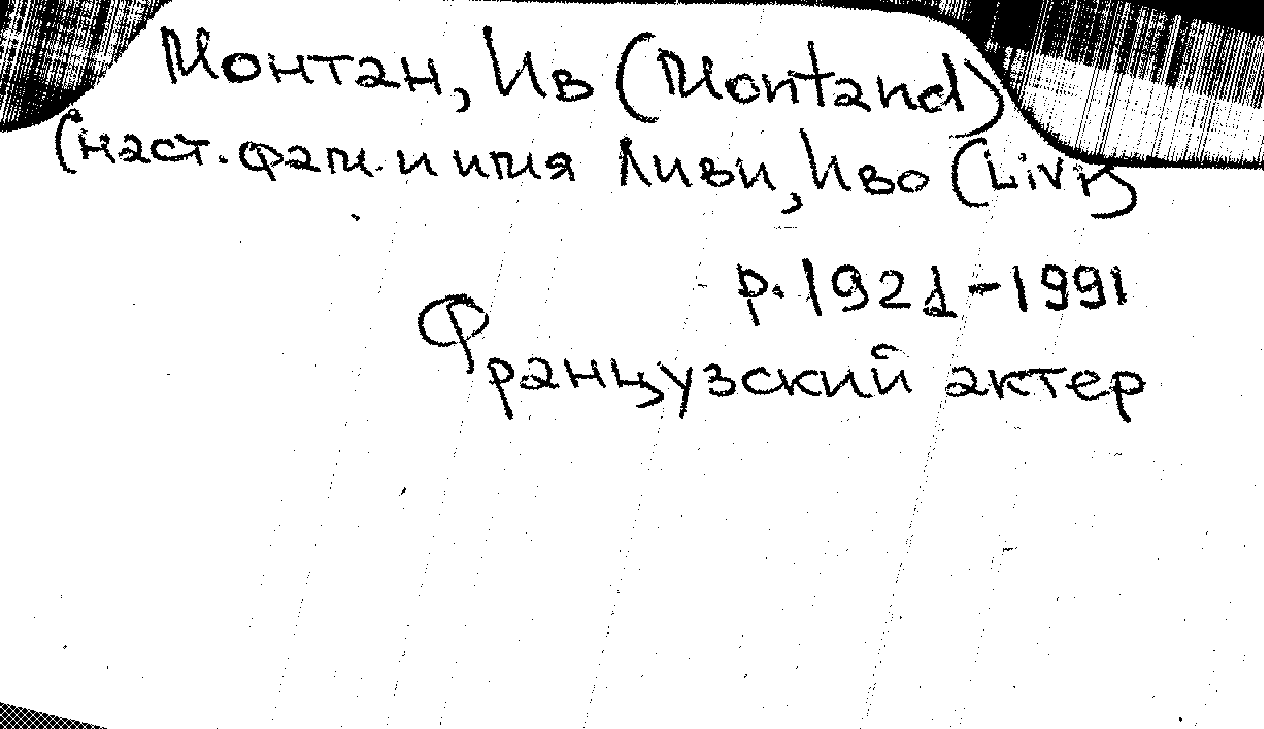 Монтан, Ив (Montand)
(наст. фам. и имя Ливи, Иво (Livi)
р. 1921-1991
Французский актер